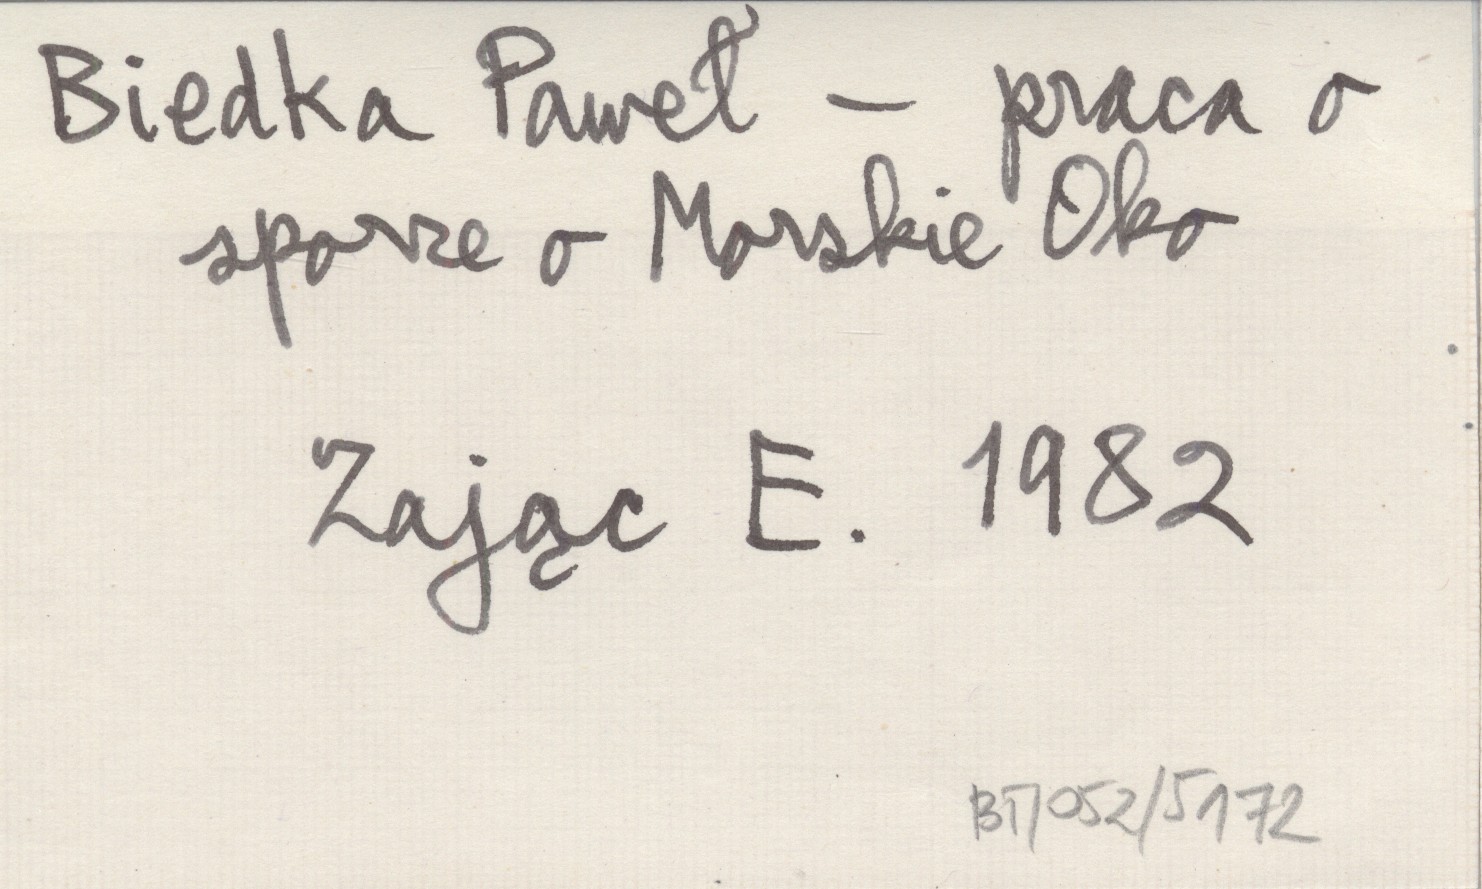 Biedka Paweł – praca o
sporze o Morskie Oko
Zając E. 1982
BT/052/5172